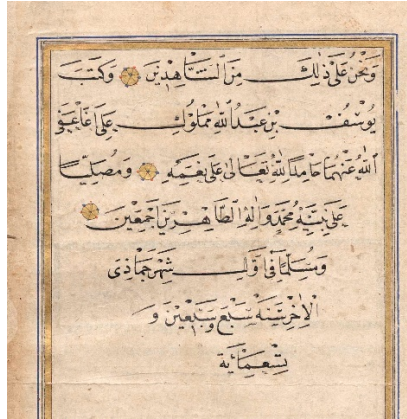 وَنَحْنُ عَلَى ذٰلِكَ مِنَ الشَّاهِدِينَ وَكَتَبَ
يُوسُفُ بْنُ عَبْدُ اللهِ مَمْلُوكِ عَلِى اغَا عَفَى
اللهُ عَنْهُمَا حَامِدًا لِلّٰهِ تَعَالَى عَلَى نِعَمِهِ وَمُصَلِّيًا
عَلَى نَبِيِّهِ مُحَمَّدٍ وَاٰلِهِ الطَّاهِرِينَ اَجْمَعِينَ
وَمُسَلِّمًا فِى اَوَّلِ شَهْرِ جَمَاذَى
الْاٰخِرِ سَنَةَ سَبْعٍ وَسَبْعِينَ وَ
تِسْعَمِائَة